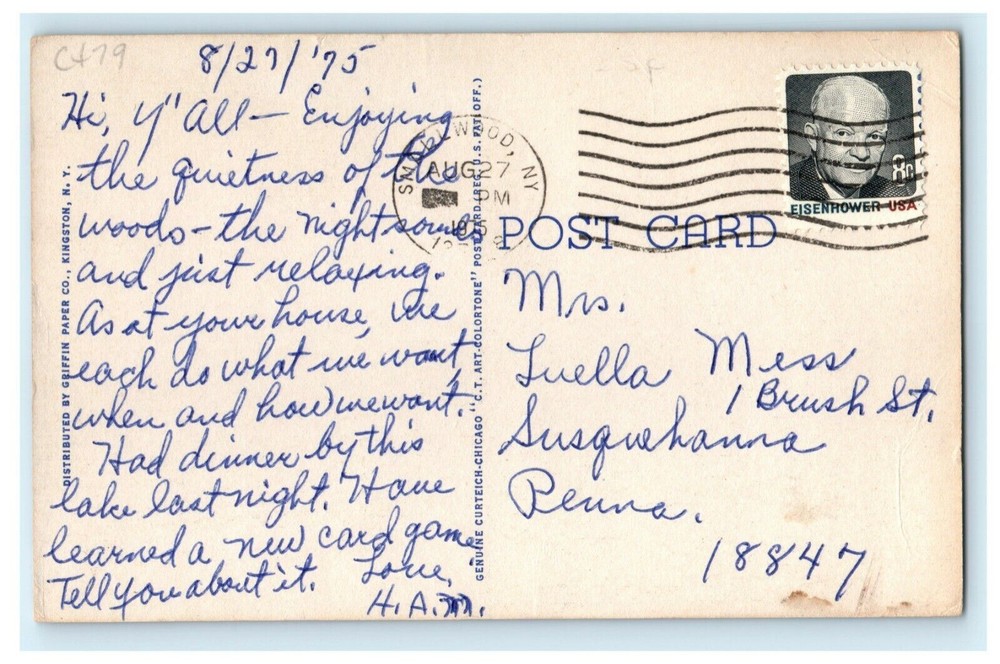 C479
8/27/'75
Hi, Y"All - Enjoying
the quietness of the
woods - the night sounds
and just relaxing.
As at your house, we
each do what we want,
when and how we want.
Had dinner by this
lake last night. Have
learned a new card game
Tell you about it. Love,
H.A.M.
DISTRIBUTED BY GRIFFIN PAPER CO., KINGSTON, N. Y.
GENUINE CURTEICH-CHICAGO "C.T. ART-COLORTONE" POST CARD (REG. U.S. PAT. OFF.)
SMALLWOOD, NY
AUG 27
PM
1975
8c
EISENHOWER USA
POST CARD
Mrs.
Luella Mess
1 Brush St.
Susquehanna
Penna.
18847